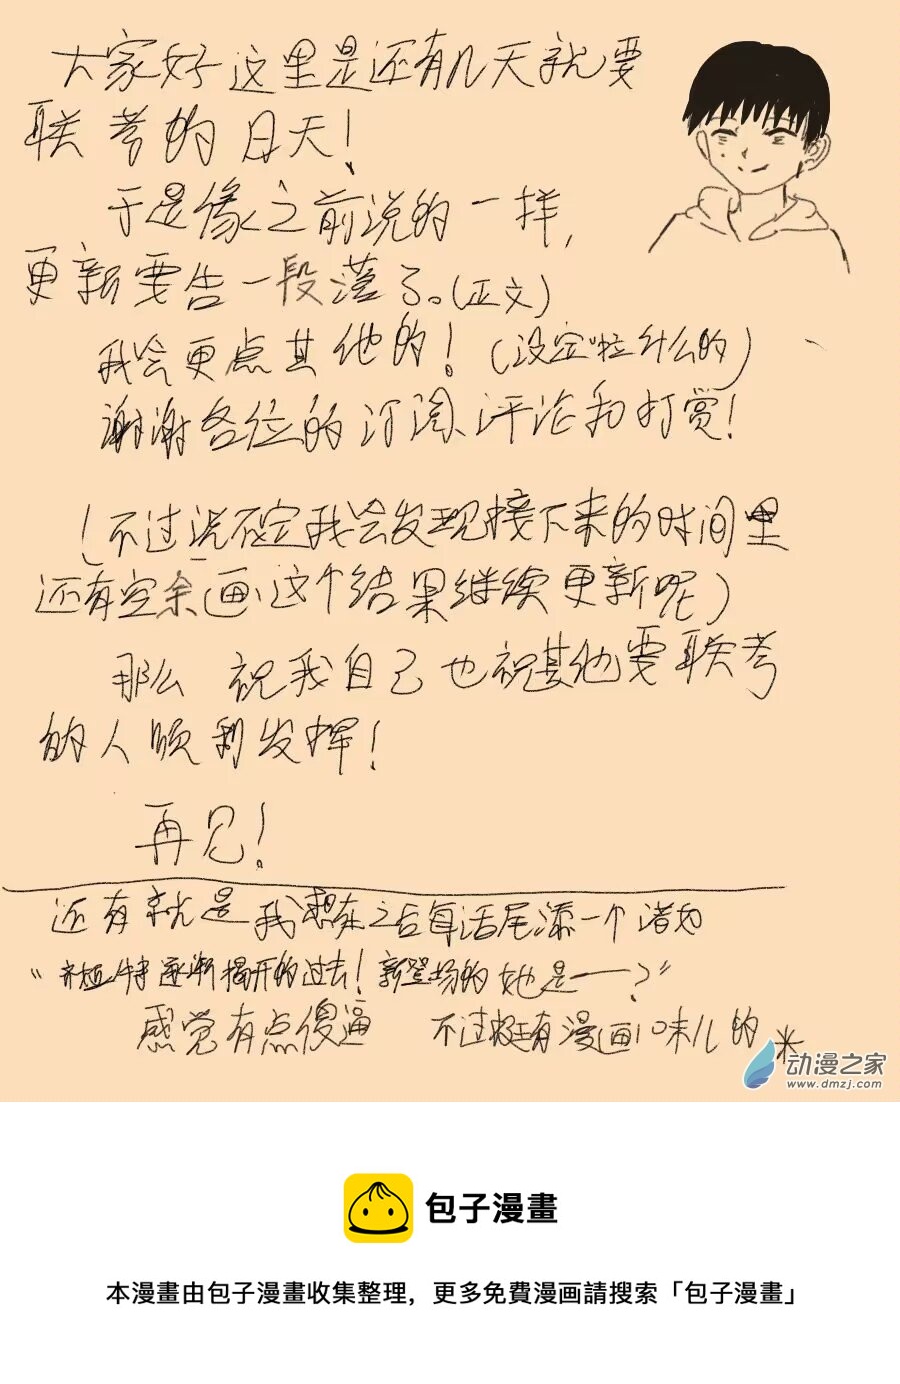 大家好这里是还有几天就要
联考的日天!
于是像之前说的一样,
更新要告一段落了。(正文)
我会更点其他的!(设定啦什么的)
谢谢各位的订阅、评论和打赏!
(不过说不定我会发现接下来的时间里
还有空余画,这个结果继续更新呢)
那么 祝我自己也祝其他要联考
的人顺利发挥!
再见!
还有就是我想在之后每话尾添一个诸如
“逐渐揭开的过去!新登场的她是——?”
感觉有点傻逼 不过挺有漫画味儿的
动漫之家
www.dmzj.com
包子漫畫
本漫畫由包子漫畫收集整理,更多免費漫画請搜索「包子漫畫」